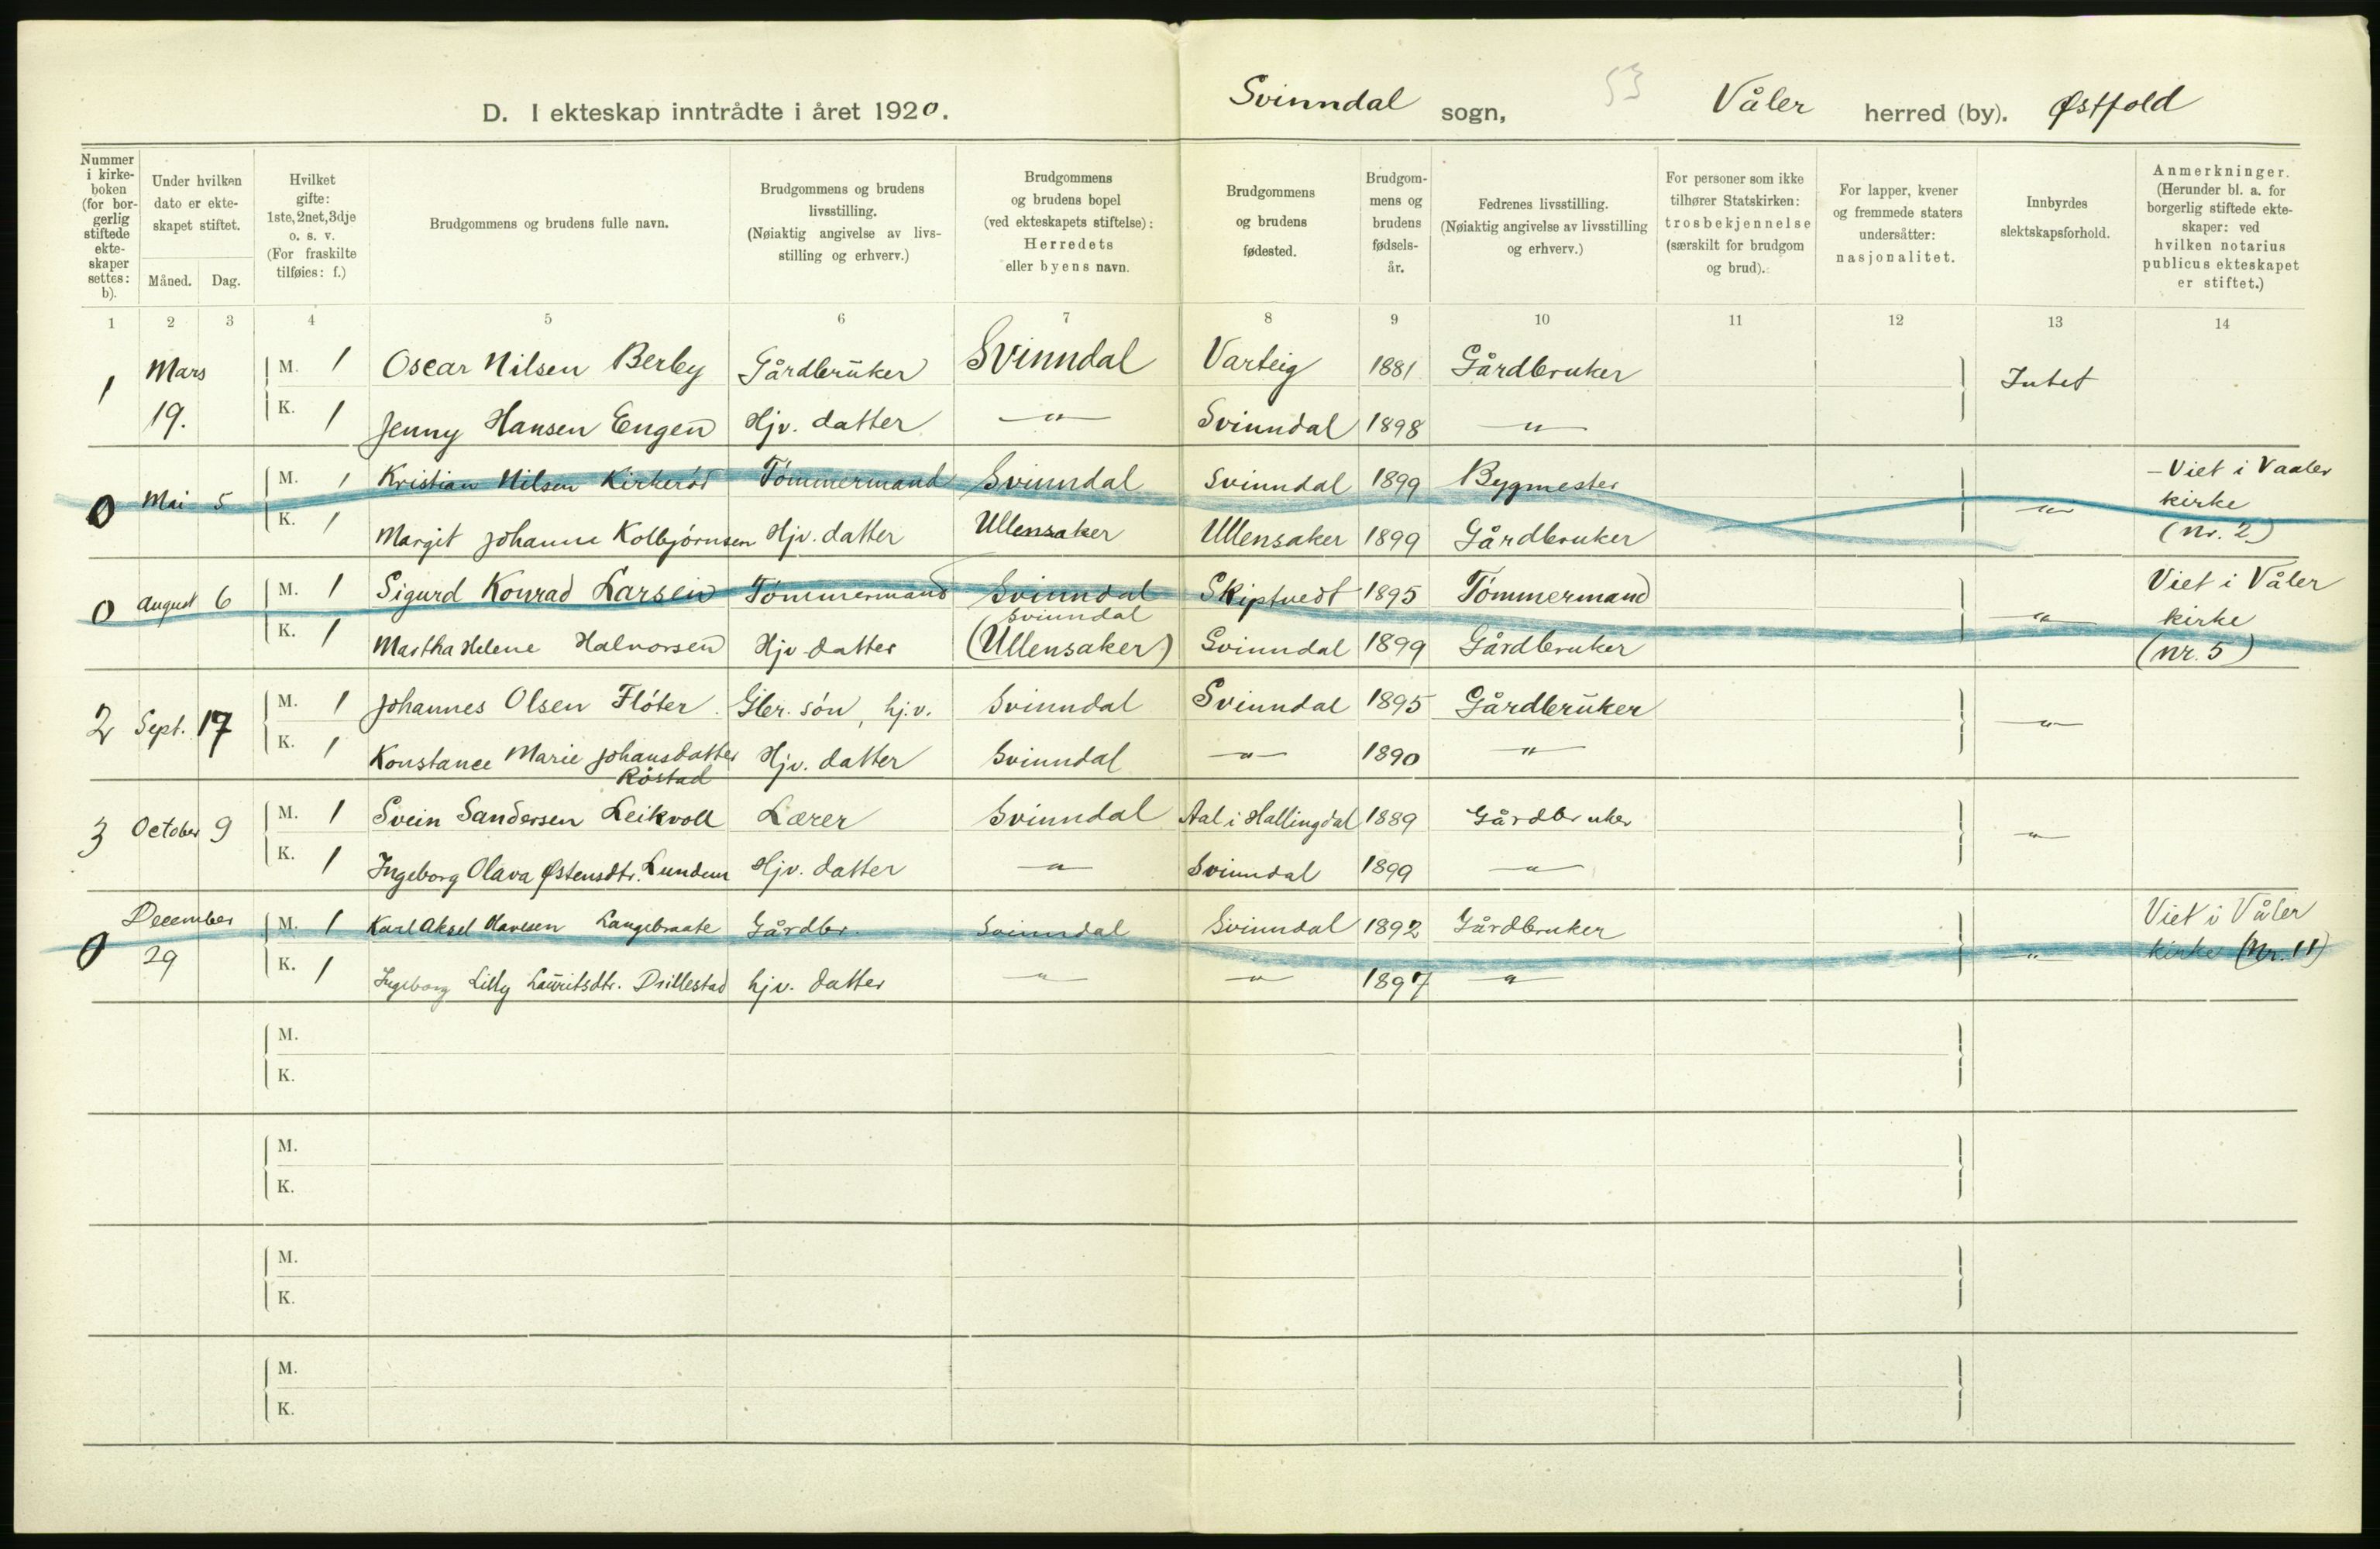 D. I ekteskap inntrådte i året 1920. Svinndal sogn, 53 Våler herred (by). Østfold
Nummer i kirke-boken (for bor-gerlig stiftede ekte-skaper settes: b).
Under hvilken dato er ekte-skapet stiftet.
Måned. Dag.
Hvilket gifte: 1ste, 2net, 3dje o. s. v. (For fraskilte tilføies: f.)
Brudgommens og brudens fulle navn.
Brudgommens og brudens livsstilling. (Nøiaktig angivelse av livs-stilling og erhverv.)
Brudgommens og brudens bopel (ved ekteskapets stiftelse): Herredets eller byens navn.
Brudgommens og brudens fødested.
Brudgom-mens og brudens fødsels-år.
Fedrenes livsstilling. (Nøiaktig angivelse av livsstilling og erhverv.)
For personer som ikke tilhører Statskirken: trosbekjennelse (særskilt for brudgom og brud).
For lapper, kvener og fremmede staters undersåtter: nasjonalitet.
Innbyrdes slektskapsforhold.
Anmerkninger. (Herunder bl. a. for borgerlig stiftede ekte-skaper: ved hvilken notarius publicus ekteskapet er stiftet.)
1 2 3 4 5 6 7 8 9 10 11 12 13 14
1 Mars 19. M. 1 Oscar Nilsen Berby Gårdbruker Svinndal Varteig 1881 Gårdbruker Intet
K. 1 Jenny Hansen Engen Hjv. datter —"— Svinndal 1898 —"—
0 Mai 5 M. 1 Kristian Nilsen Kirkerød Tømmermand Svinndal Svinndal 1899 Bygmester —"— – Viet i Vaaler kirke (nr. 2)
K. 1 Margit Johanne Kolbjørnsen Hjv. datter Ullensaker Ullensaker 1899 Gårdbruker
0 August 6 M. 1 Sigurd Konrad Larsen Tømmermand Svinndal Skiptvedt 1895 Tømmermand —"— Viet i Våler kirke (nr. 5)
K. 1 Martha Helene Halvorsen Hjv. datter Svinndal (Ullensaker) Svinndal 1899 Gårdbruker
2 Sept. 17 M. 1 Johannes Olsen Fløter. Gbr. søn, hj.v. Svinndal Svinndal 1895 Gårdbruker —"—
K. 1 Konstance Marie Johansdatter Røstad Hjv. datter Svinndal —"— 1890 —"—
3 October 9 M. 1 Svein Sandersen Leikvoll Lærer Svinndal Aal i Hallingdal 1889 Gårdbruker —"—
K. 1 Ingeborg Olava Østensdtr. Lundem Hjv. datter —"— Svinndal 1899 —"—
0 December 29 M. 1 Karl Aksel Olavesen Langebraate Gårdbr. Svinndal Svinndal 1892 Gårdbruker —"— Viet i Våler kirke (Nr. 11)
K. 1 Ingeborg Lilly Lauritsdtr. Drillestad hjv. datter —"— —"— 1897 —"—
M.
K.
M.
K.
M.
K.
M.
K.